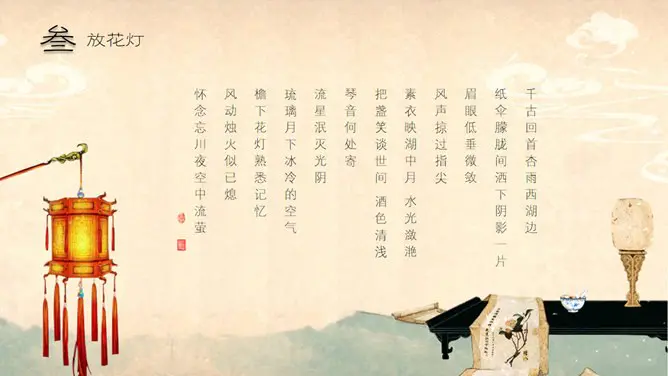 叁 放花灯
千古回首杏雨西湖边
纸伞朦胧间洒下阴影一片
眉眼低垂微敛
风声掠过指尖
素衣映湖中月 水光潋滟
把盏笑谈世间 酒色清浅
琴音何处寄
流星泯灭光阴
琉璃月下冰冷的空气
檐下花灯熟悉记忆
风动烛火似已熄
怀念忘川夜空中流萤